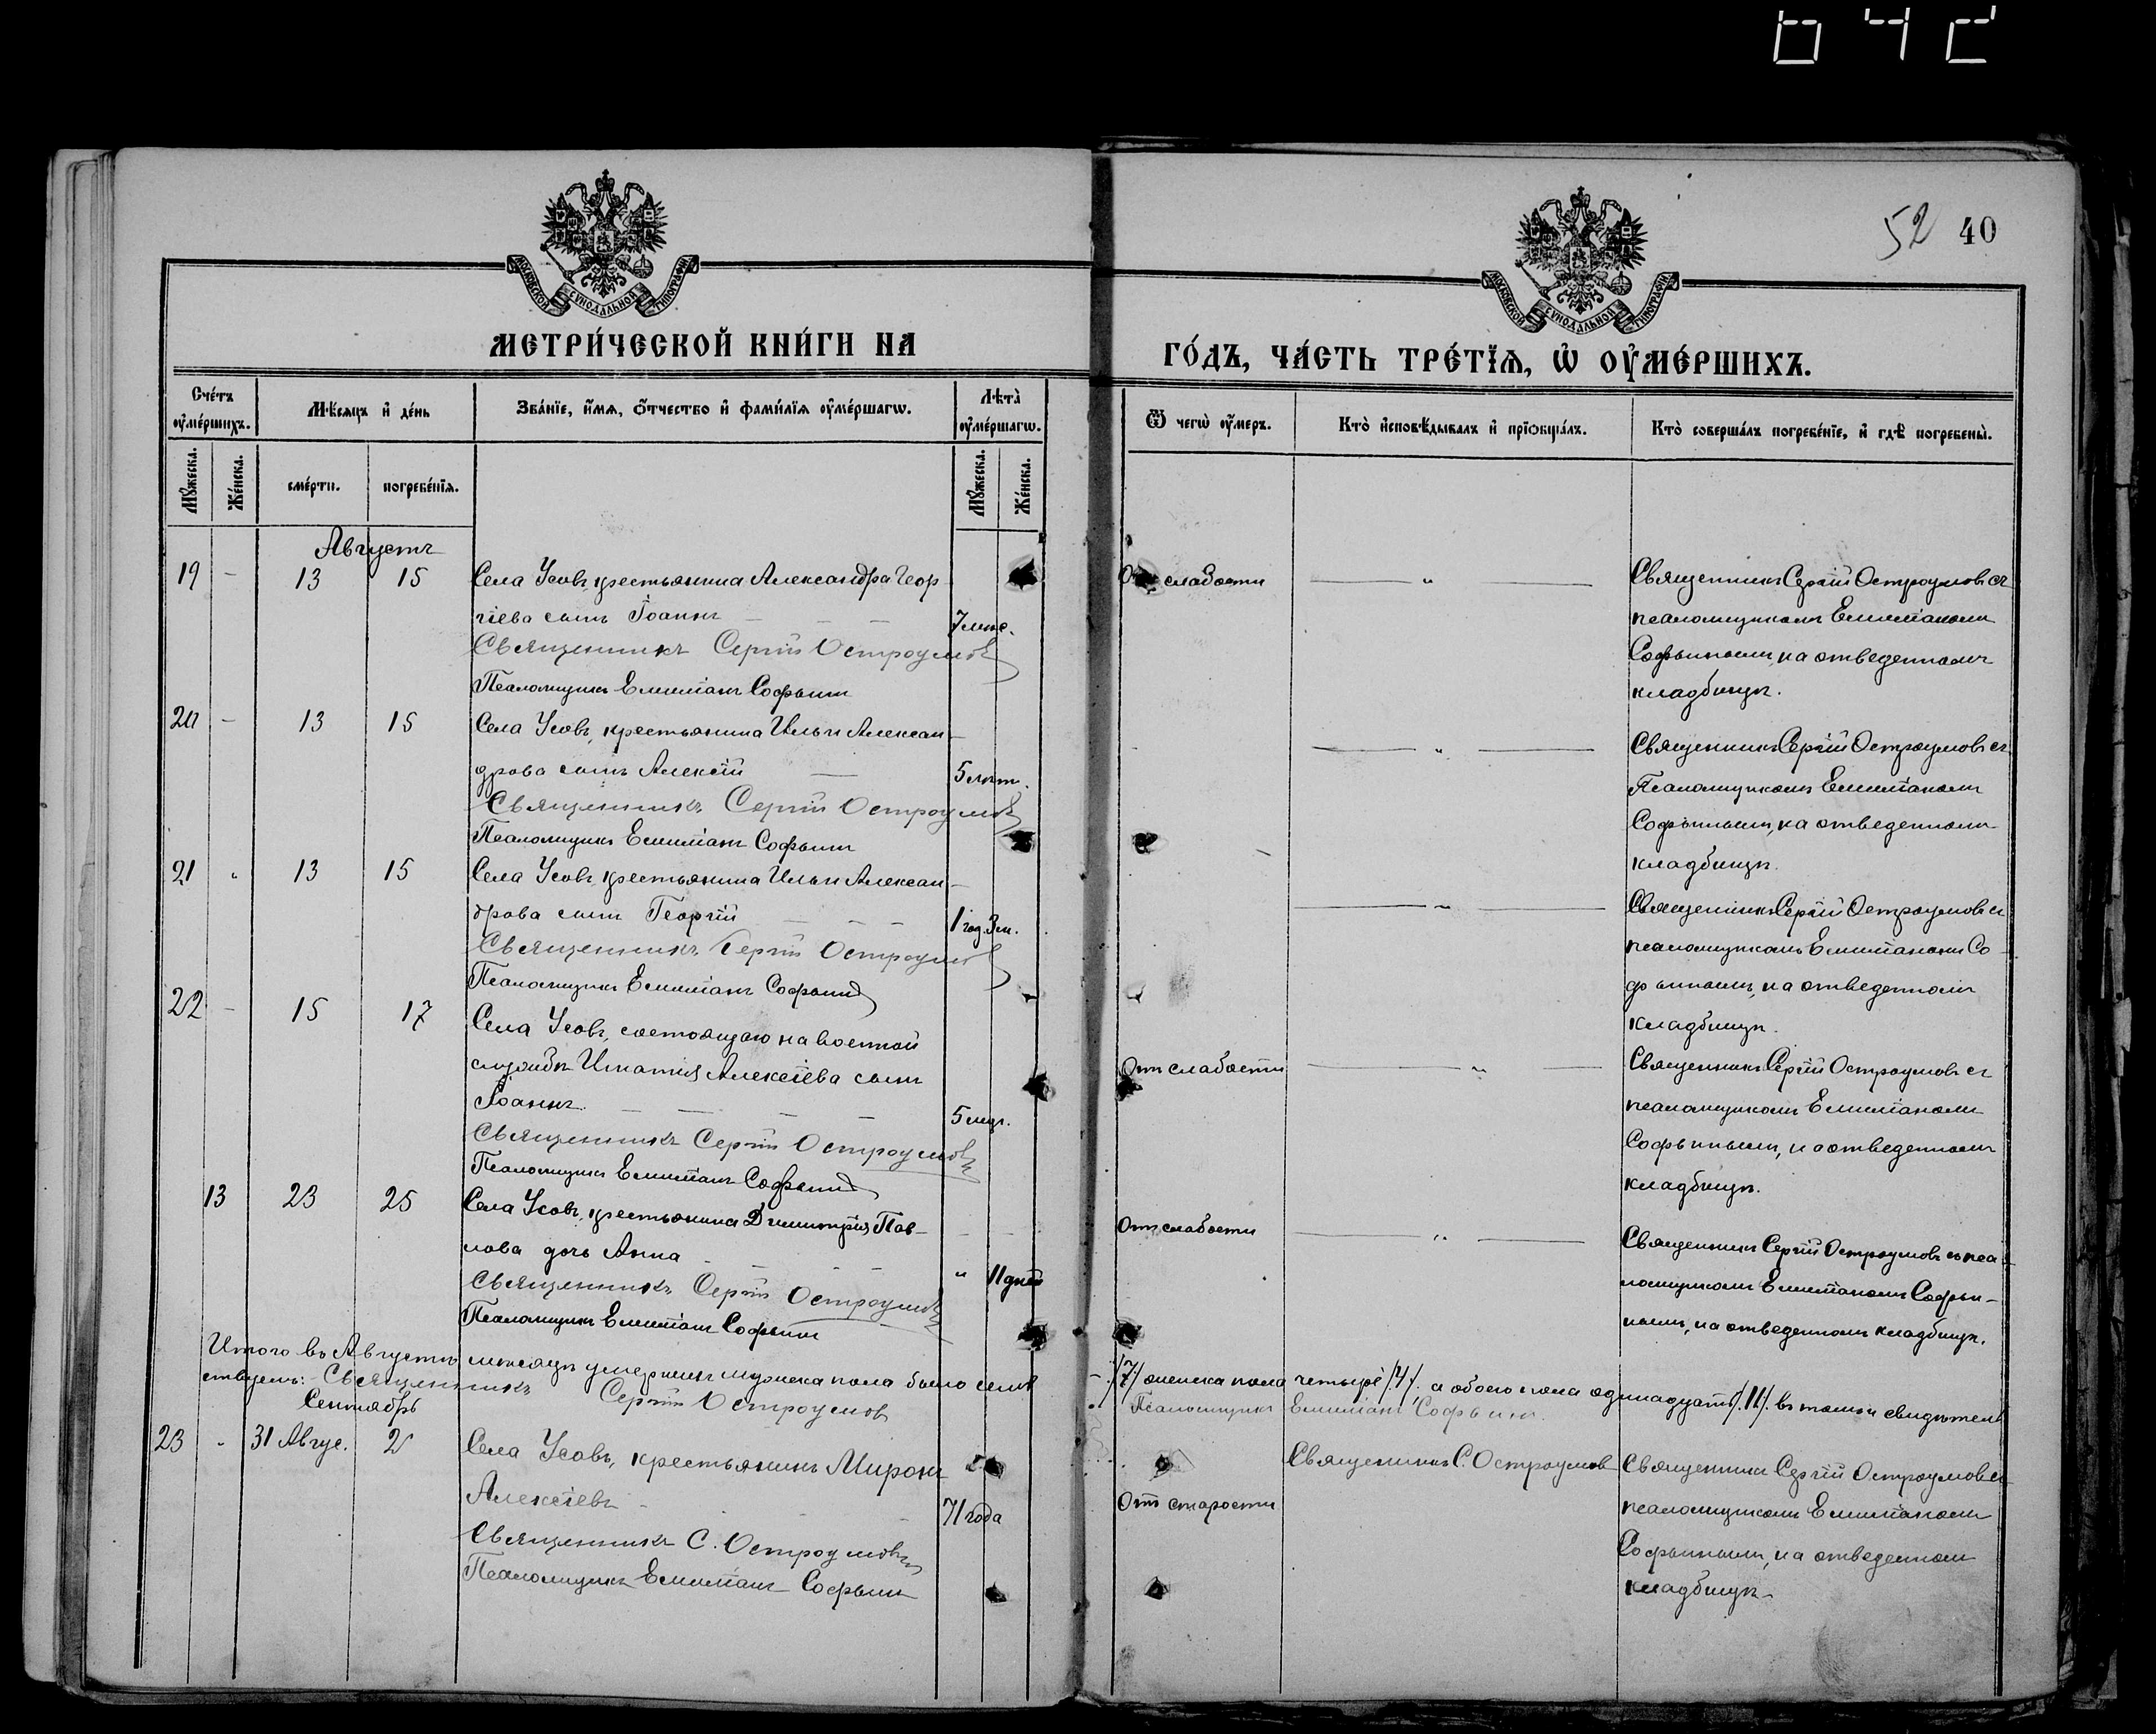 042
52 40
МОСКОВСКОЙ СѴНОДАЛЬНОЙ ТИПОГРАФІИ
МОСКОВСКОЙ СѴНОДАЛЬНОЙ ТИПОГРАФІИ
МЕТРИ́ЧЕСКОЙ КНИ́ГИ НА
ГО́ДЪ, ЧА́СТЬ ТРЕ́ТЇѦ, Ѡ҆ ОУ҆МЕ́РШИХЪ.
Сче́тъ оу҆ме́ршихъ.
Мѣ́сяцъ и҆ де́нь
Зва́нїе, и҆́мѧ, ѻ҆́тчество и҆ фами́лїѧ оу҆ме́ршагѡ.
Лѣта̀ оу҆ме́ршагѡ.
Ѿ чегѡ̀ оу҆́меръ.
Кто̀ и҆сповѣ́дывалъ и҆ прїобща́лъ.
Кто̀ соверша́лъ погребе́нїе, и҆ гдѣ̀ погребены̀.
Мꙋ́жеска.
Же́нска.
сме́рти.
погребе́нїѧ.
Мꙋ́жеска.
Же́нска.
Августъ
19 - 13 15 Села Усовъ, крестьянина Александра Геор
гіева сынъ Іоаннъ 7 мѣс.
Священникъ Сергій Остроумовъ
Псаломщикъ Емиліанъ Софьинъ
Отъ слабости
Священникъ Сергій Остроумовъ съ
псаломщикомъ Емиліаномъ
Софьинымъ, на отведенномъ
кладбищѣ.
20 - 13 15 Села Усовъ, крестьянина Ильи Алексан-
дрова сынъ Алексій 5 лѣт.
Священникъ Сергій Остроумовъ
Псаломщикъ Емиліанъ Софьинъ
Священникъ Сергій Остроумовъ съ
Псаломщикомъ Емиліаномъ
Софьинымъ, на отведенномъ
кладбищѣ.
21 " 13 15 Села Усовъ, крестьянина Ильи Алексан-
дрова сынъ Георгій 1 год. 3 м.
Священникъ Сергій Остроумовъ
Псаломщикъ Емиліанъ Софьинъ
Священникъ Сергій Остроумовъ съ
псаломщикомъ Емиліаномъ Со-
фьинымъ, на отведенномъ
кладбищѣ.
22 - 15 17 Села Усовъ, состоящаго на военной
службѣ Игнатія Алексіева сынъ
Іоаннъ 5 мѣс.
Священникъ Сергій Остроумовъ
Псаломщикъ Емиліанъ Софьинъ
Отъ слабости
Священникъ Сергій Остроумовъ съ
псаломщикомъ Емиліаномъ
Софьинымъ, на отведенномъ
кладбищѣ.
13 23 25 Села Усовъ, крестьянина Димитрія Пав-
лова дочь Анна " 11 дней
Священникъ Сергій Остроумовъ
Псаломщикъ Емиліанъ Софьинъ
Отъ слабости
Священникъ Сергій Остроумовъ съ пса-
ломщикомъ Емиліаномъ Софьи-
нымъ, на отведенномъ кладбищѣ.
Итого въ Августѣ мѣсяцѣ умершихъ мужеска пола было семь /7/ женска пола четыре /4/. а обоего пола одинадцать /11/. въ томъ и свидѣтель
ствуемъ: Священникъ Сергій Остроумовъ Псаломщикъ Емиліанъ Софьинъ.
Сентябрь
23 " 31 Авгус. 2 Села Усовъ, крестьянинъ Миронъ
Алексіевъ 71 года
Священникъ С. Остроумовъ
Псаломщикъ Емиліанъ Софьинъ
Отъ старости
Священникъ С. Остроумовъ
Священникъ Сергій Остроумовъ съ
псаломщикомъ Емиліаномъ
Софьинымъ, на отведенномъ
кладбищѣ